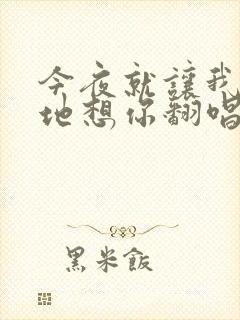 今夜就讓我
地想你翻唱
黑米飯